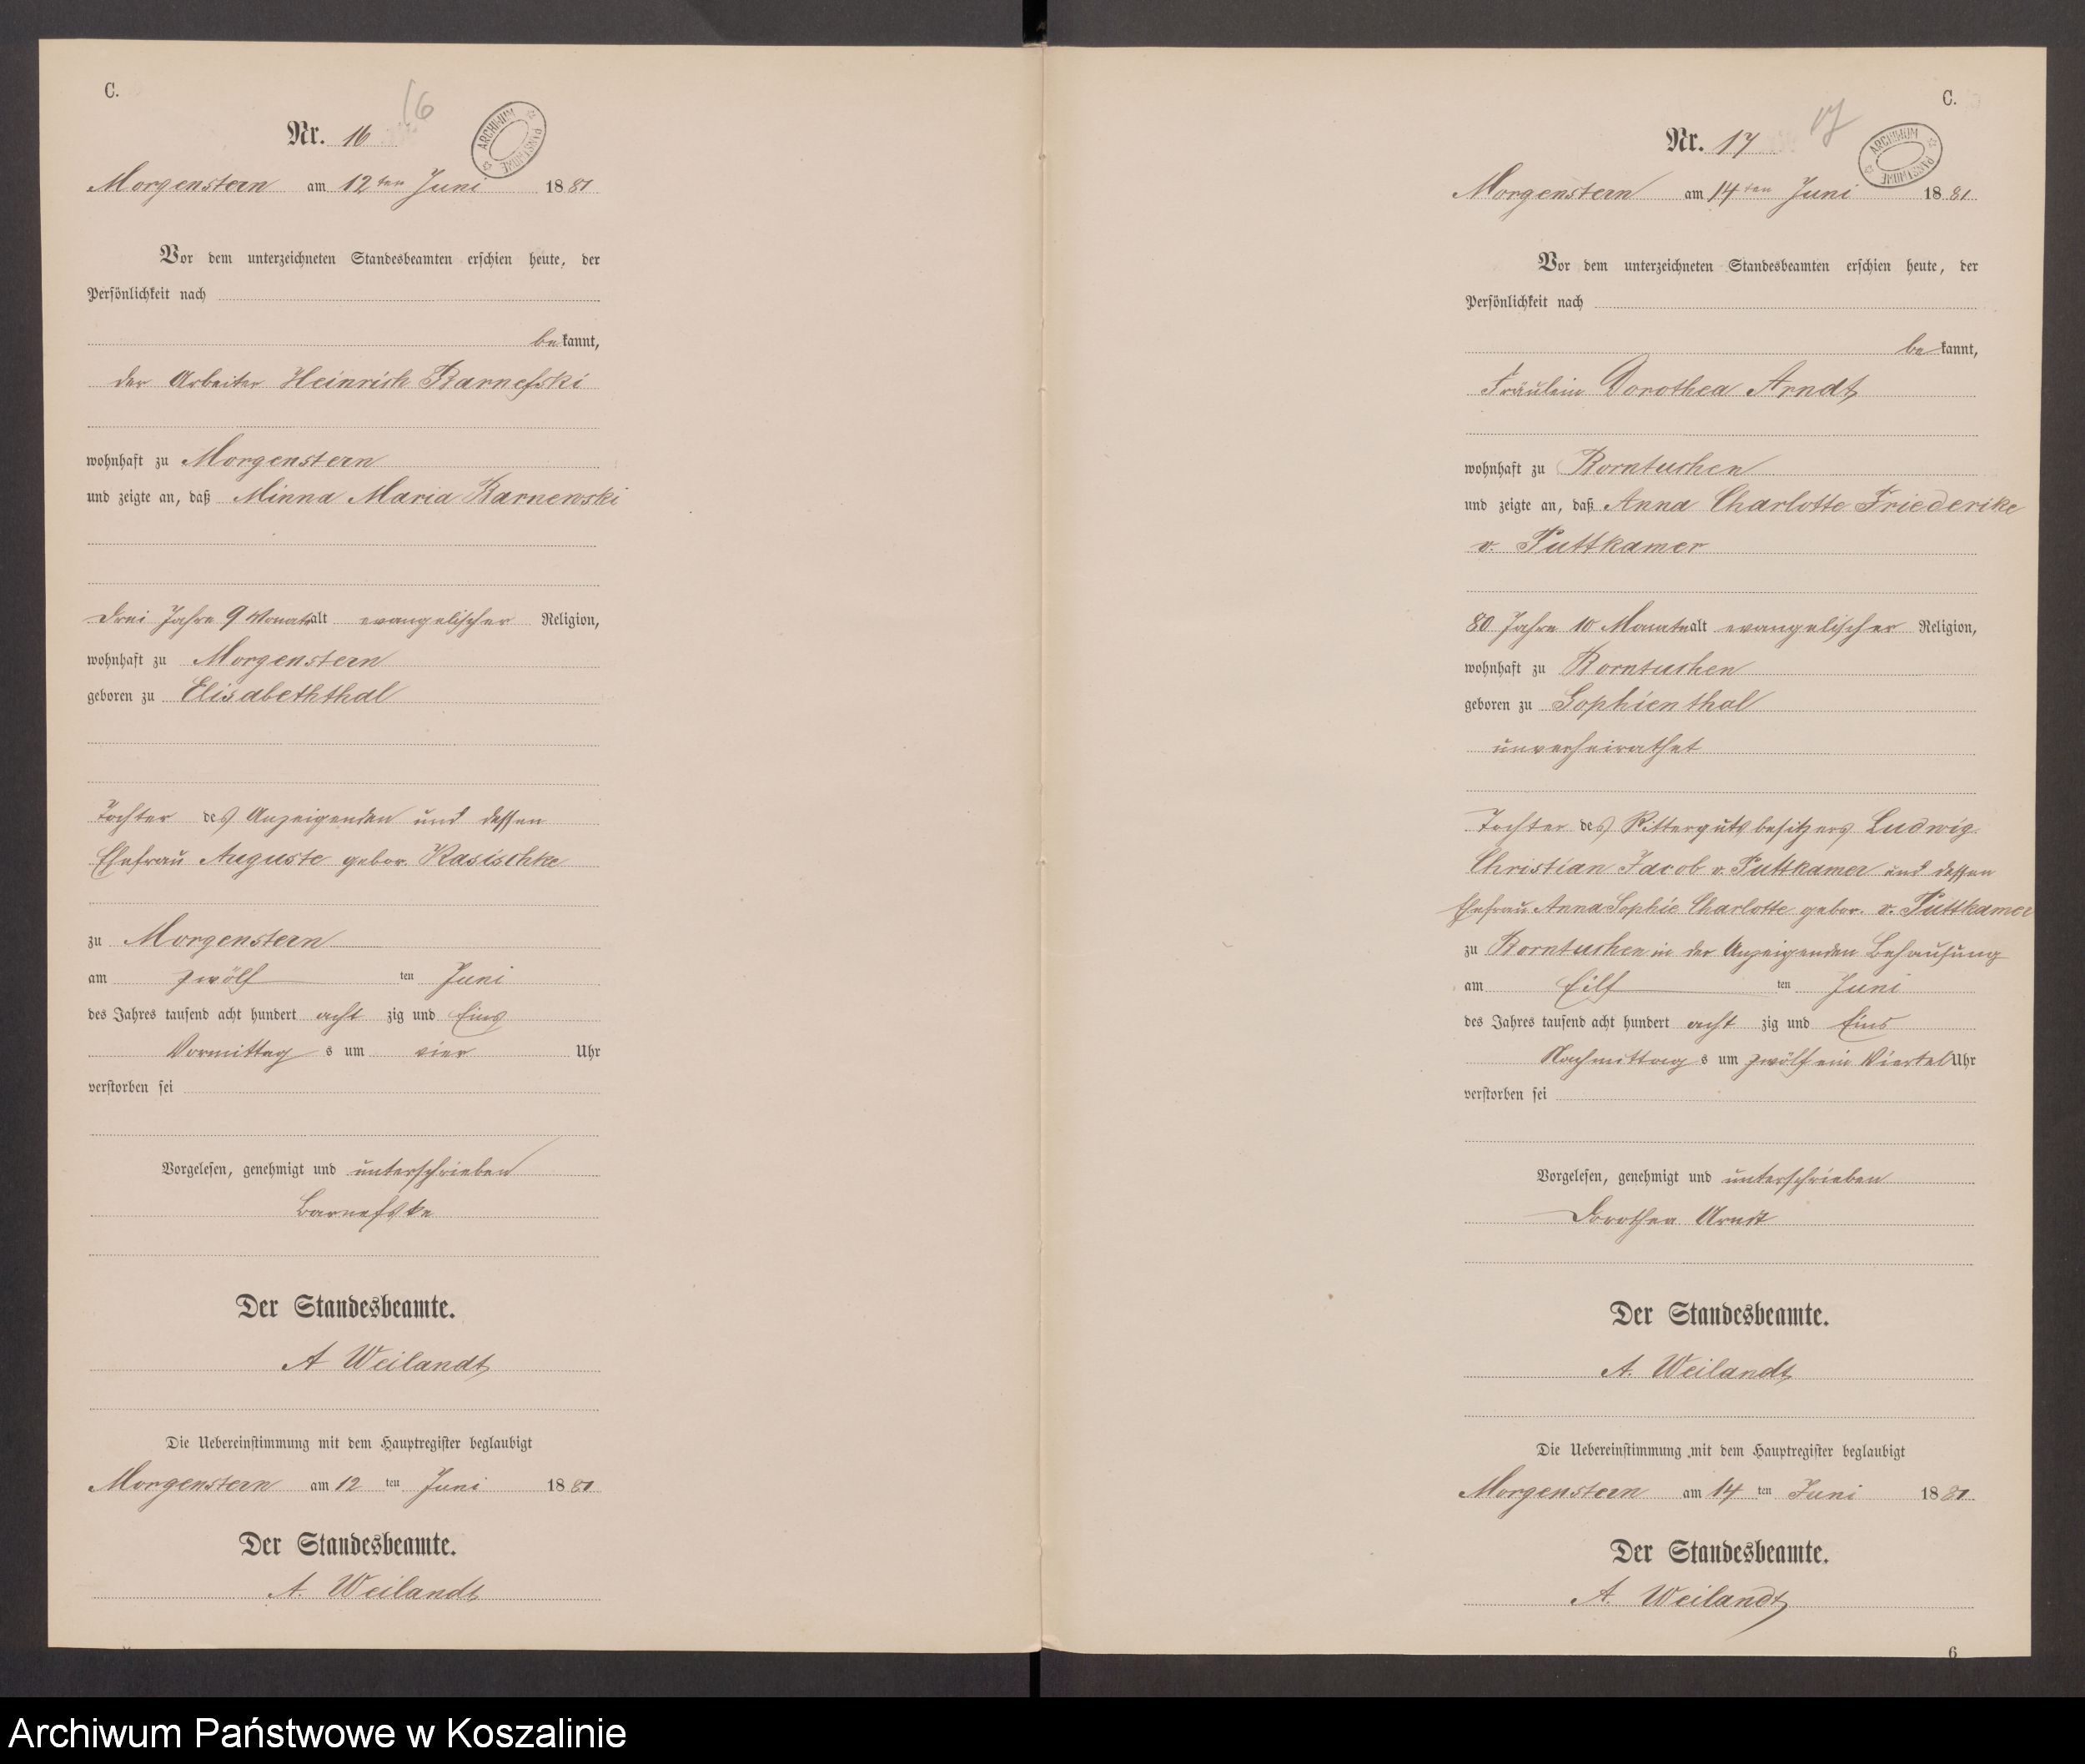 C.
16
Nr. 16
ARCHIWUM PAŃSTWOWE
Morgenstern am 12ten Juni 1881
Vor dem unterzeichneten Standesbeamten erschien heute, der
Persönlichkeit nach
bekannt,
der Arbeiter Heinrich Barnefski
wohnhaft zu Morgenstern
und zeigte an, daß Minna Maria Barnewski
drei Jahre 9 Monate alt evangelischer Religion,
wohnhaft zu Morgenstern
geboren zu Elisabeththal
Tochter des Anzeigenden und dessen
Ehefrau Auguste gebor. Kasischke
zu Morgenstern
am zwölf ten Juni
des Jahres tausend acht hundert acht zig und Eins
Vormittag s um vier Uhr
verstorben sei
Vorgelesen, genehmigt und unterschrieben
Barnefske
Der Standesbeamte.
A Weilandt
Die Uebereinstimmung mit dem Hauptregister beglaubigt
Morgenstern am 12 ten Juni 1881
Der Standesbeamte.
A. Weilandt
C.
17
Nr. 17
ARCHIWUM PAŃSTWOWE
Morgenstern am 14ten Juni 1881
Vor dem unterzeichneten Standesbeamten erschien heute, der
Persönlichkeit nach
bekannt,
Fräulein Dorothea Arndt
wohnhaft zu Borntuchen
und zeigte an, daß Anna Charlotte Friederike
v. Puttkamer
80 Jahre 10 Monate alt evangelischer Religion,
wohnhaft zu Borntuchen
geboren zu Sophienthal
unverheirathet
Tochter des Rittergutsbesitzers Ludwig
Christian Jacob v. Puttkamer und dessen
Ehefrau Anna Sophie Charlotte gebor. v. Puttkamer
zu Borntuchen in der Anzeigenden Behausung
am Eilf ten Juni
des Jahres tausend acht hundert acht zig und Eins
Nachmittag s um zwölf ein Viertel Uhr
verstorben sei
Vorgelesen, genehmigt und unterschrieben
Dorothea Arndt
Der Standesbeamte.
A. Weilandt
Die Uebereinstimmung mit dem Hauptregister beglaubigt
Morgenstern am 14 ten Juni 1881
Der Standesbeamte.
A. Weilandt
6
Archiwum Państwowe w Koszalinie